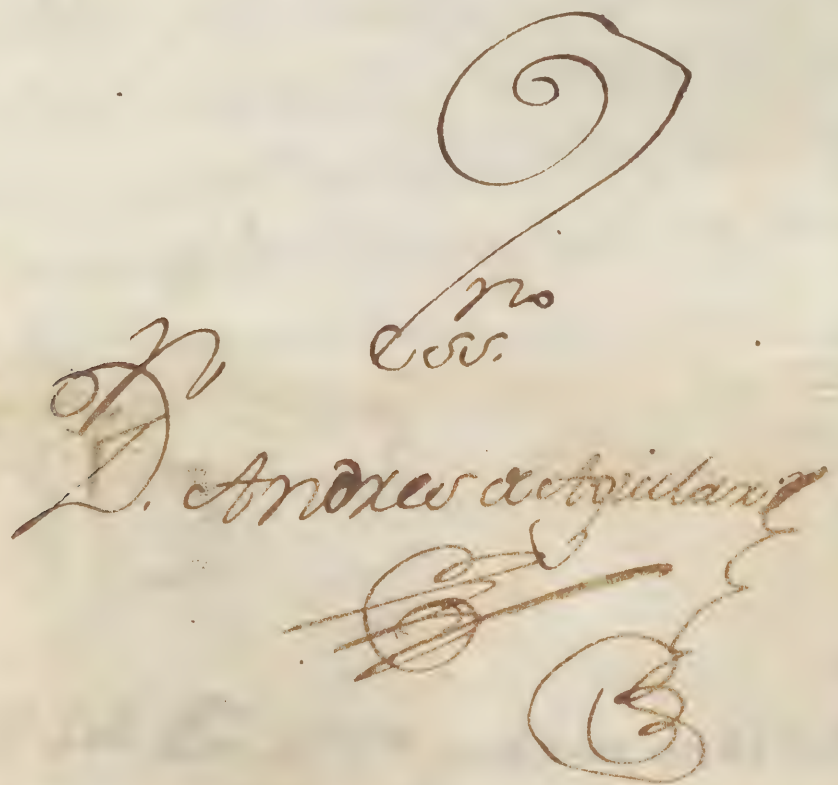 Ess.no
D.n Andres de Aguilar